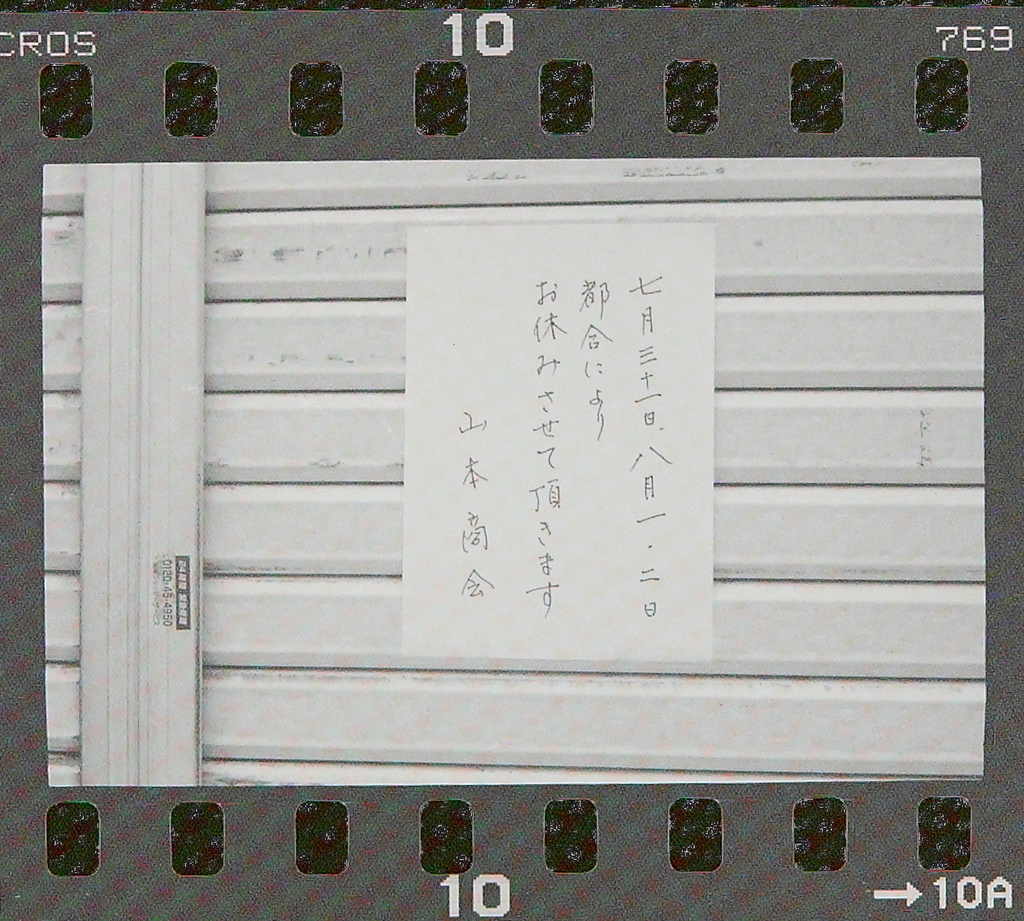 CROS
10
769
七月三十一日、八月一・二日
都合により
お休みさせて頂きます
山本商会
0120-45-4950
10
→10A